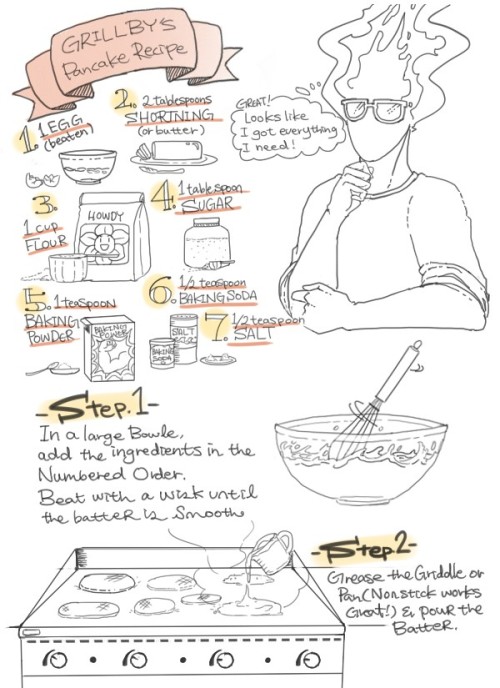 GRILLBY'S
Pancake Recipe
1. 1 EGG
(beaten)
2. 2 tablespoons
SHORTNING
(or butter)
GREAT!
Looks like
I got everything
I need!
3.
1 cup
FLOUR
HOWDY
4. 1 tablespoon
SUGAR
5. 1 teaspoon
BAKING
POWDER
BAKING
POWER
6. 1/2 teaspoon
BAKING SODA
SALT
BAKING
SODA
7. 1/2 teaspoon
SALT
-Step.1-
In a large Bowle,
add the ingredients in the
Numbered Order.
Beat with a wisk until
the batter is Smooth
-Step2-
Grease the Griddle or
Pan(Nonstick works
Great!) & pour the
Batter.